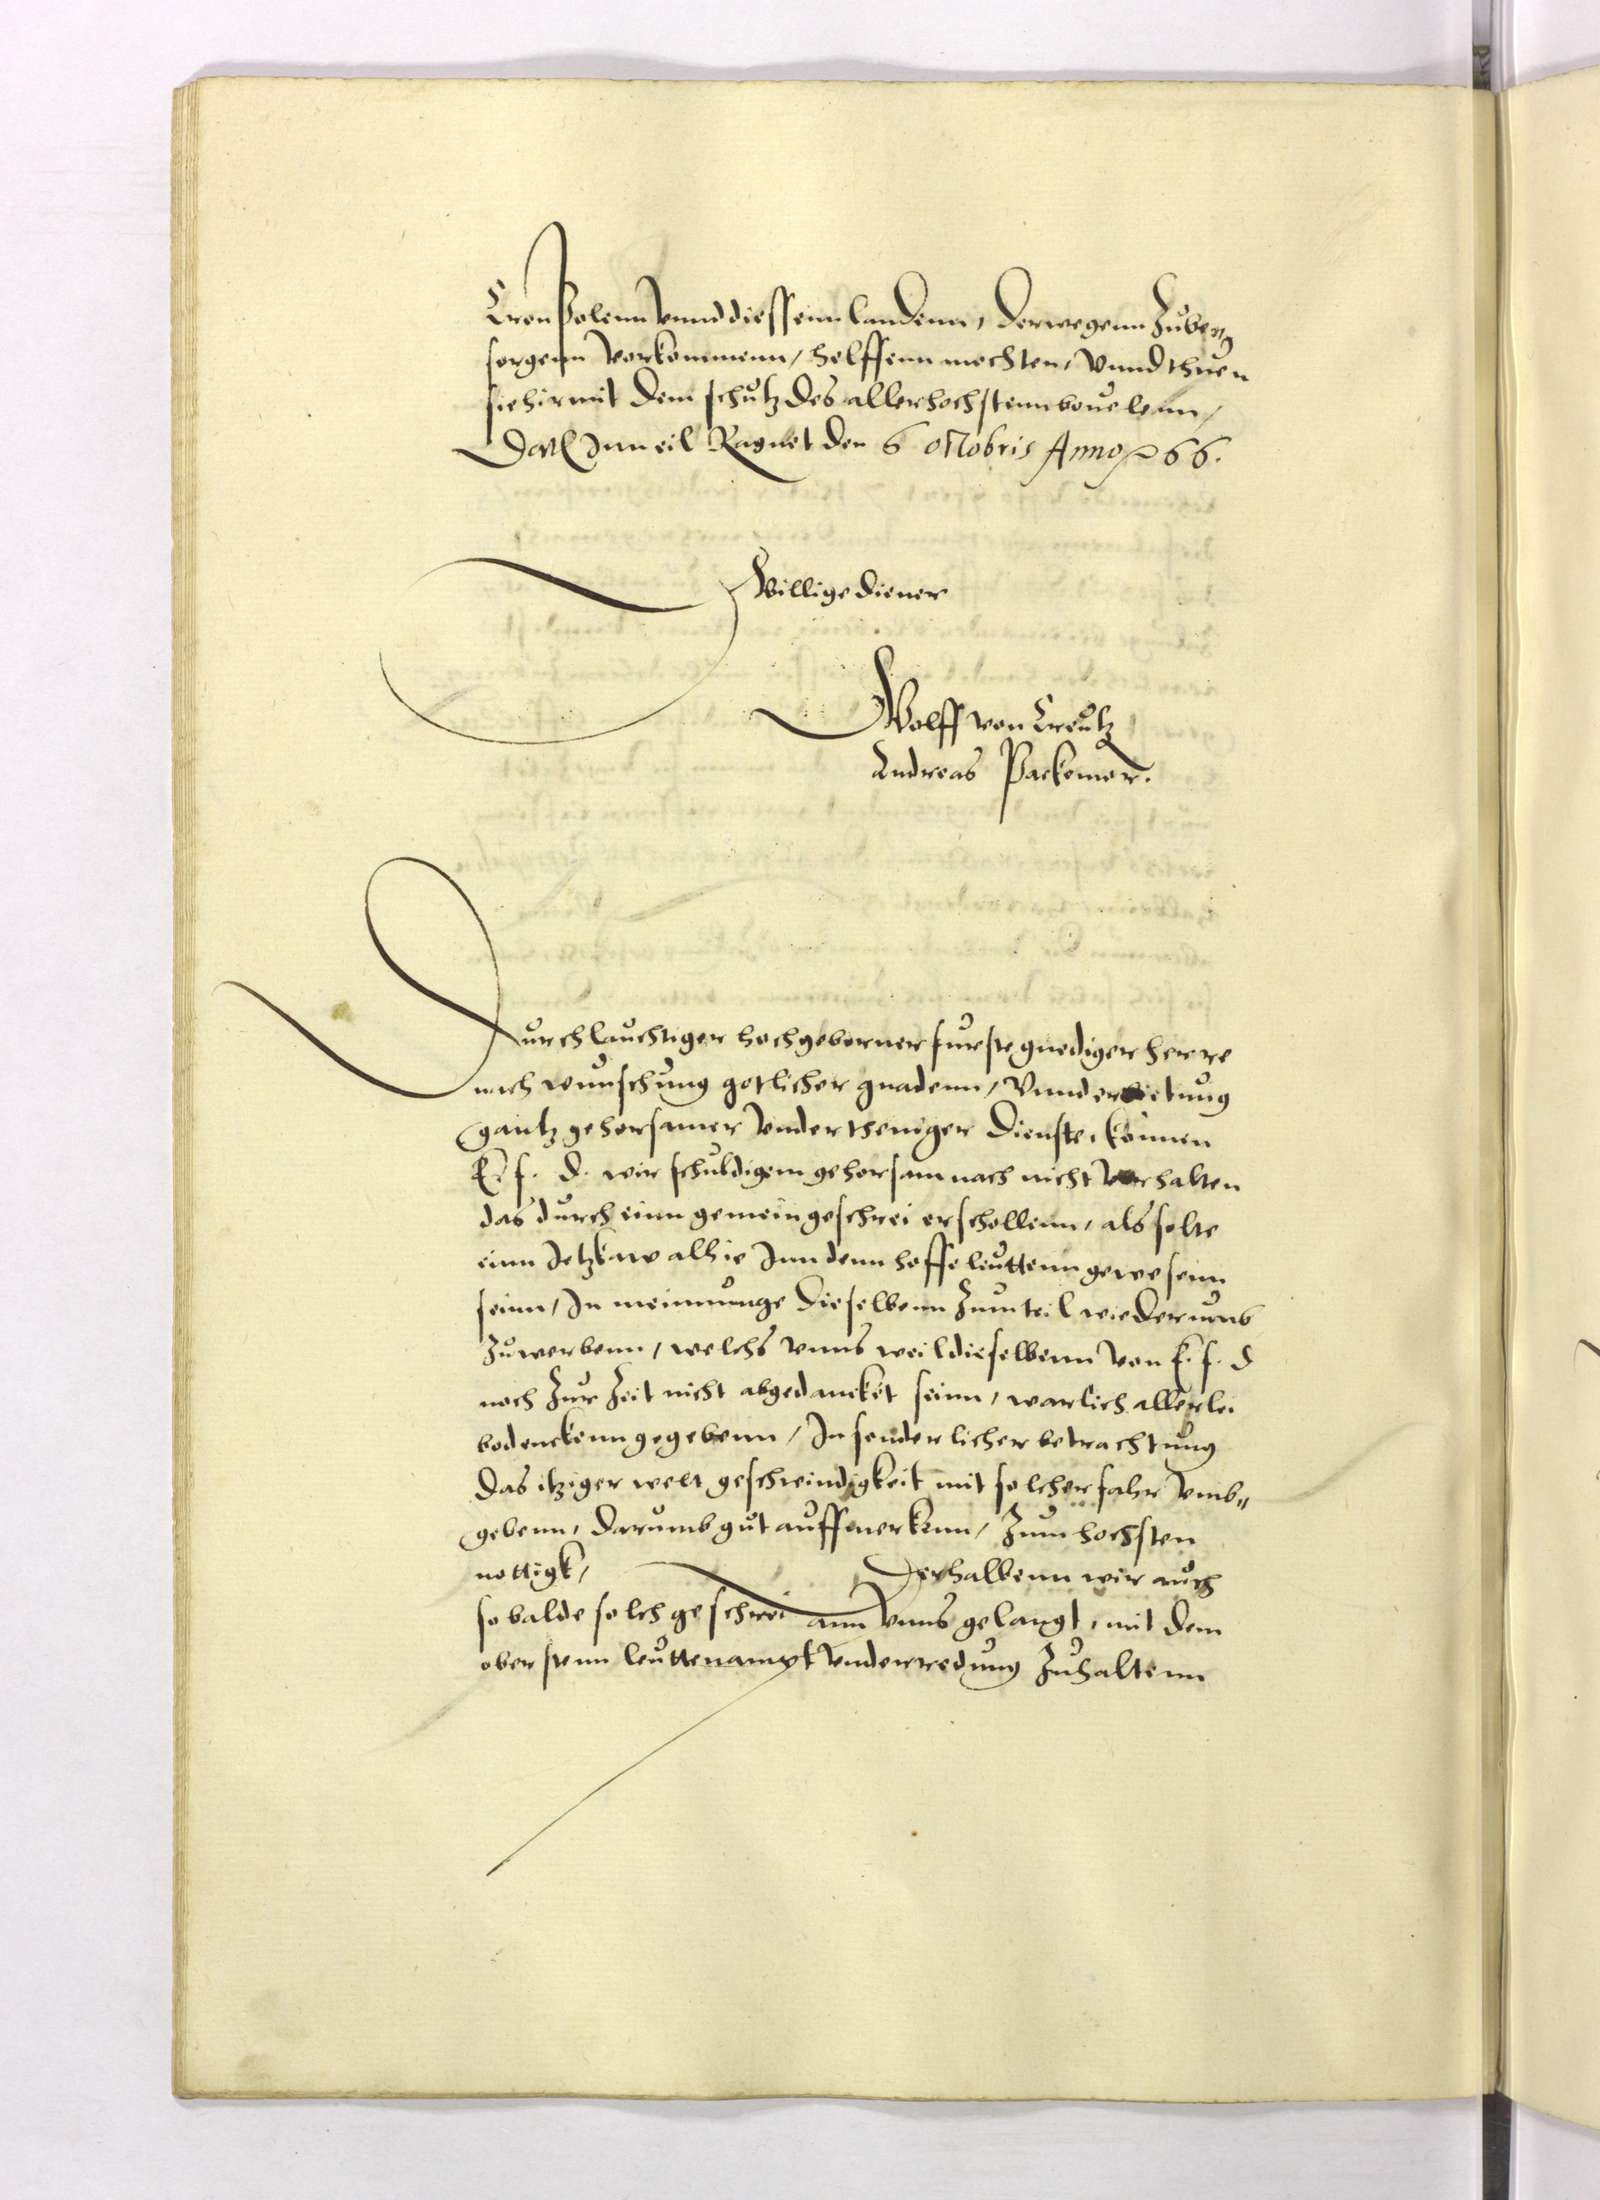 Cron Polenn vnnd diessenn landenn, derwegenn zube⸗
sorgenn vorkommenn, helffenn mochten, vnnd thuen
sie hirmit dem schutz des allerhochstenn beuelenn,
Dat Inn eil Ragnet den 6 octobris Anno 66.
Willige diener
Wolff von Creutz
Andreas Packemor.
Durchlauchtiger hochgeborner furste gnediger herre
nach wunschung gotlicher gnadenn, vnnd erbietung
gantz gehorsamer vndertheniger dienste, konnen
E. f. d. wir schuldigem gehorsam nach nicht verhalten
das durch einn gemein geschrei erschollenn, als solte
einn Jetzkaw alhie Inn denn hoffeleuttenn gewesenn
seinn, In meinnunge dieselbenn zum teil wiederumb
zuwerbenn, welchs vnns weil dieselbenn von E. f. d
noch zur zeit nicht abgedancket seinn, warlich allerlei
bedenckenn gegebenn, In sonderlicher betrachtung
das itziger welt geschwindigkeit mit solcher fahr vmb⸗
gebenn, darumb gut auffmerkenn, zum hochsten
nottigk, Derhalbenn wir auch
so balde solch geschrei ann vnns gelangt, mit dem
oberstenn leuttenampt vnderredung zuhaltenn